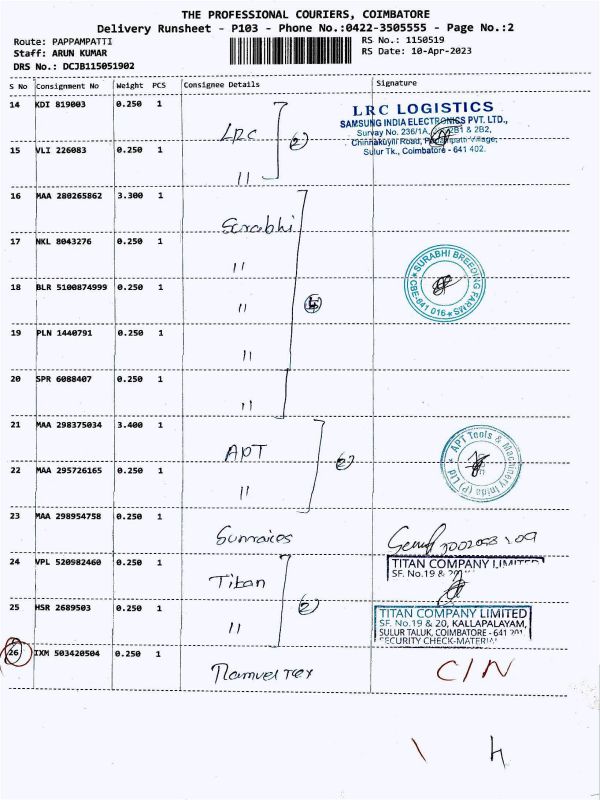 THE PROFESSIONAL COURIERS, COIMBATORE
Delivery Runsheet - P103 - Phone No.:0422-3505555 - Page No.:2
Route: PAPPAMPATTI RS No.: 1150519
Staff: ARUN KUMAR RS Date: 10-Apr-2023
DRS No.: DCJB115051902
S No Consignment No Weight PCS Consignee Details Signature
14 KDI 819003 0.250 1 LRC
2
LRC LOGISTICS
SAMSUNG INDIA ELECTRONICS PVT. LTD.,
Survay No. 236/1A, 2B1 & 2B2,
Chinnakuyili Road, Village,
Sulur Tk., Coimbatore - 641 402.
15 VLI 226083 0.250 1 "
16 MAA 280265862 3.300 1 Surabhi
17 NKL 8043276 0.250 1 "
SURABHI BREEDING FARMS
CBE-641 016
18 BLR 5100874999 0.250 1 "
19 PLN 1440791 0.250 1 "
20 SPR 6088407 0.250 1 "
21 MAA 298375034 3.400 1 APT
2
APT Tools & Machinery India (P) Ltd
22 MAA 295726165 0.250 1 "
23 MAA 298954758 0.250 1
24 VPL 520982460 0.250 1 Titan
2
TITAN COMPANY LIMITED
SF. No.19 &
25 HSR 2689503 0.250 1 "
TITAN COMPANY LIMITED
SF. No.19 & 20, KALLAPALAYAM,
SULUR TALUK, COIMBATORE - 641 201.
SECURITY CHECK-MATERIAL
26 IXM 503420504 0.250 1 C/N